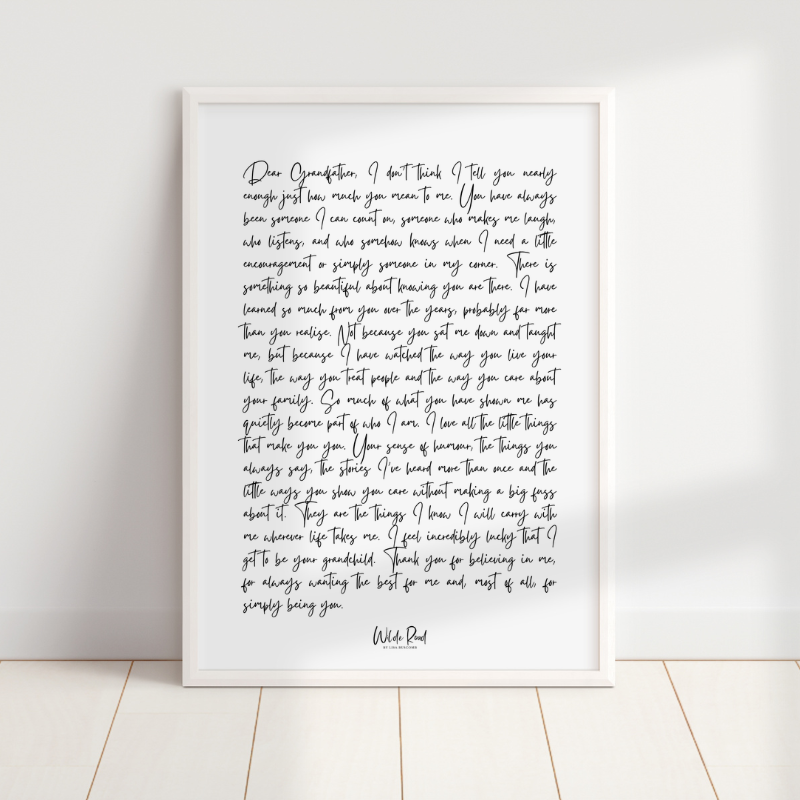 Dear Grandfather, I don't think I tell you nearly
enough just how much you mean to me. You have always
been someone I can count on, someone who makes me laugh,
who listens, and who somehow knows when I need a little
encouragement or simply someone in my corner. There is
something so beautiful about knowing you are there. I have
learned so much from you over the years, probably far more
than you realise. Not because you sat me down and taught
me, but because I have watched the way you live your
life, the way you treat people and the way you care about
your family. So much of what you have shown me has
quietly become part of who I am. I love all the little things
that make you you. Your sense of humour, the things you
always say, the stories I've heard more than once and the
little ways you show you care without making a big fuss
about it. They are the things I know I will carry with
me wherever life takes me. I feel incredibly lucky that I
get to be your grandchild. Thank you for believing in me,
for always wanting the best for me and, most of all, for
simply being you.
Wilde Road
BY LISA